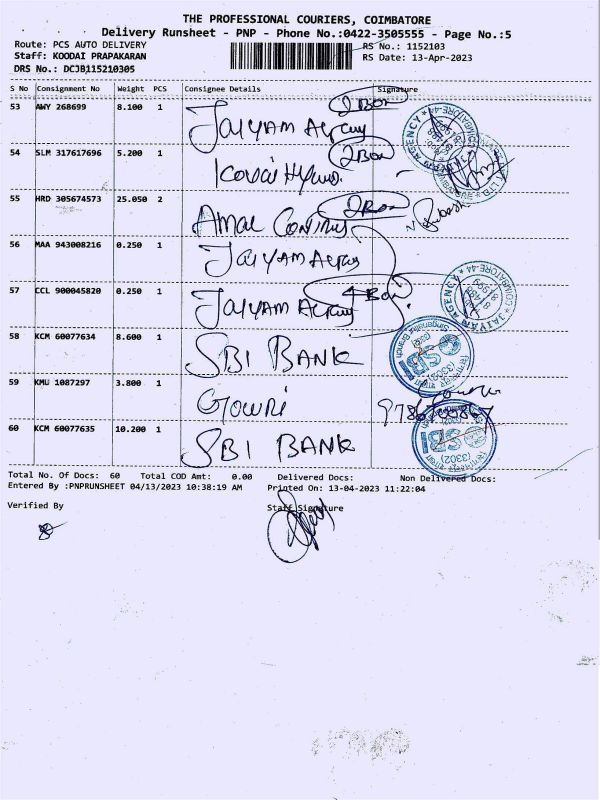 THE PROFESSIONAL COURIERS, COIMBATORE
Delivery Runsheet - PNP - Phone No.:0422-3505555 - Page No.:5
Route: PCS AUTO DELIVERY
RS No.: 1152103
Staff: KOODAI PRAPAKARAN
RS Date: 13-Apr-2023
DRS No.: DCJB115210305
S No Consignment No Weight PCS Consignee Details Signature
53 AWY 268699 8.100 1 2 Box
JAIYAM Agency
54 SLM 317617696 5.200 1 2 Box
Kovai
55 HRD 305674573 25.050 2 2 Box
AMAL
56 MAA 943008216 0.250 1
JAIYAM Agency
57 CCL 900045820 0.250 1 4 Box
JAIYAM Agency
58 KCM 60077634 8.600 1 SBI BANK
59 KMU 1087297 3.800 1 GOWRI
60 KCM 60077635 10.200 1 SBI BANK
JAIYAM AGENCY COIMBATORE-44
JAIYAM AGENCY COIMBATORE-44
SBI
SBI
Total No. Of Docs: 60 Total COD Amt: 0.00 Delivered Docs: Non Delivered Docs:
Entered By :PNPRUNSHEET 04/13/2023 10:38:19 AM Printed On: 13-04-2023 11:22:04
Verified By Staff Signature